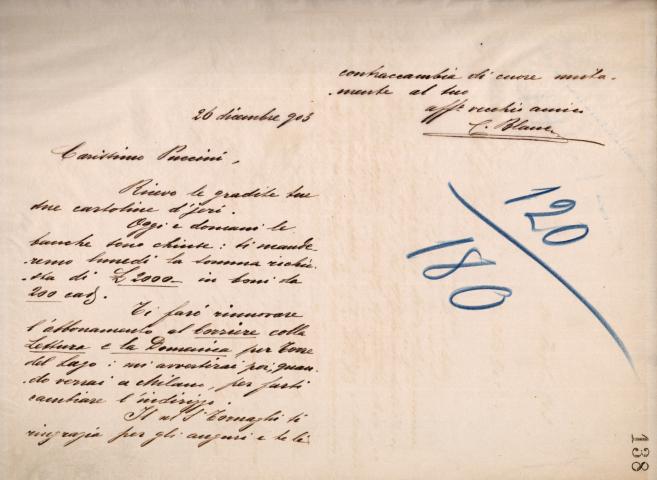 26 dicembre 903
Carissimo Puccini,
Ricevo le gradite tue
due cartoline d'jeri.
Oggi e domani le
banche sono chiuse: ti mande
remo lunedì la somma richie
sta di £ 2000 in boni da
200 cad.
Ti farò rinnovare
l'abbonamento al Corriere colla
Lettura e la Domenica per Torre
del Lago: mi avvertirai poi, quan
do verrai a Milano, per farti
cambiare l'indirizzo.
Il Sr Tornaghi ti
ringrazia per gli auguri e te li
contraccambia di cuore unita-
mente al tuo
affo vecchio amico
C. Blanc
120
180
138